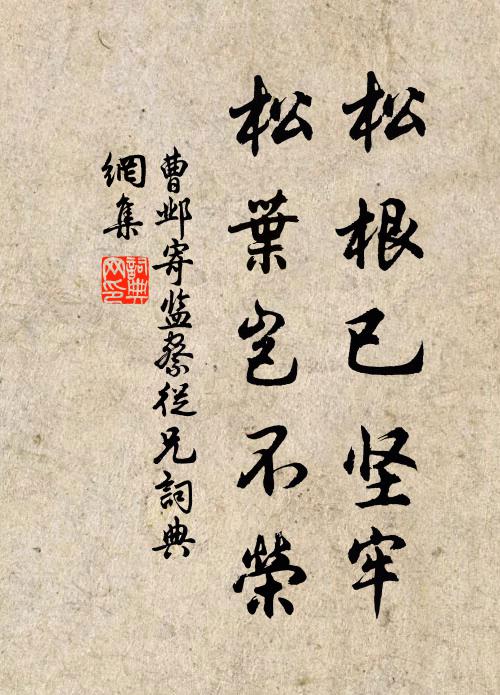 松根已坚牢
松葉岂不榮
曹邺寄监察從兄詞典
網集
詞典
网印